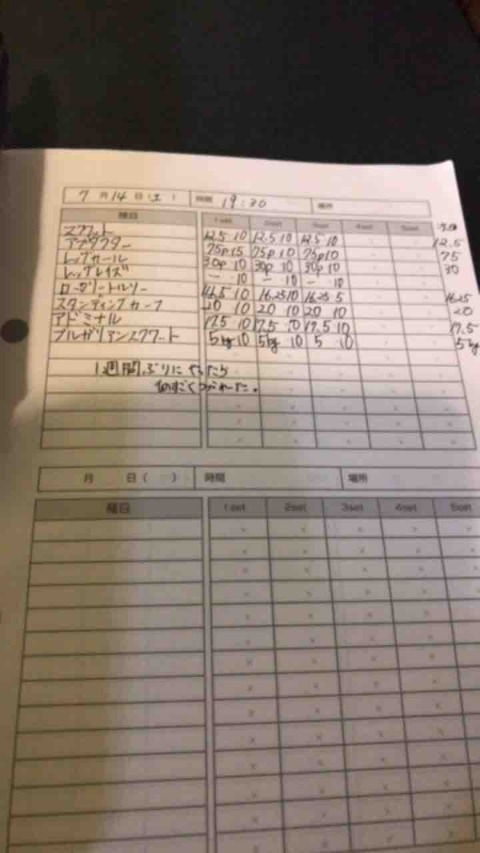 7 月 14 日 (土) 時間 19:30 場所
種目 1set 2set 3set 4set 5set 次回
スクワット 12.5 10 12.5 10 12.5 10 12.5
アブダクター 75p 15 75p 10 75p 10 75
レッグカール 30p 10 30p 10 30p 10 30
レッグレイズ - 10 - 10 - 10
ロータリートルソー 10 16.25 10 16.25 5 16.25
スタンディングカーフ 20 10 20 10 20 10 20
アドミナル 17.5 10 17.5 10 17.5 10 17.5
ブルガリアンスクワット 5kg 10 5kg 10 5 10 5kg
1週間ぶりにやったら
ものすごくつかれた。
月 日 ( ) 時間 場所
種目 1set 2set 3set 4set 5set